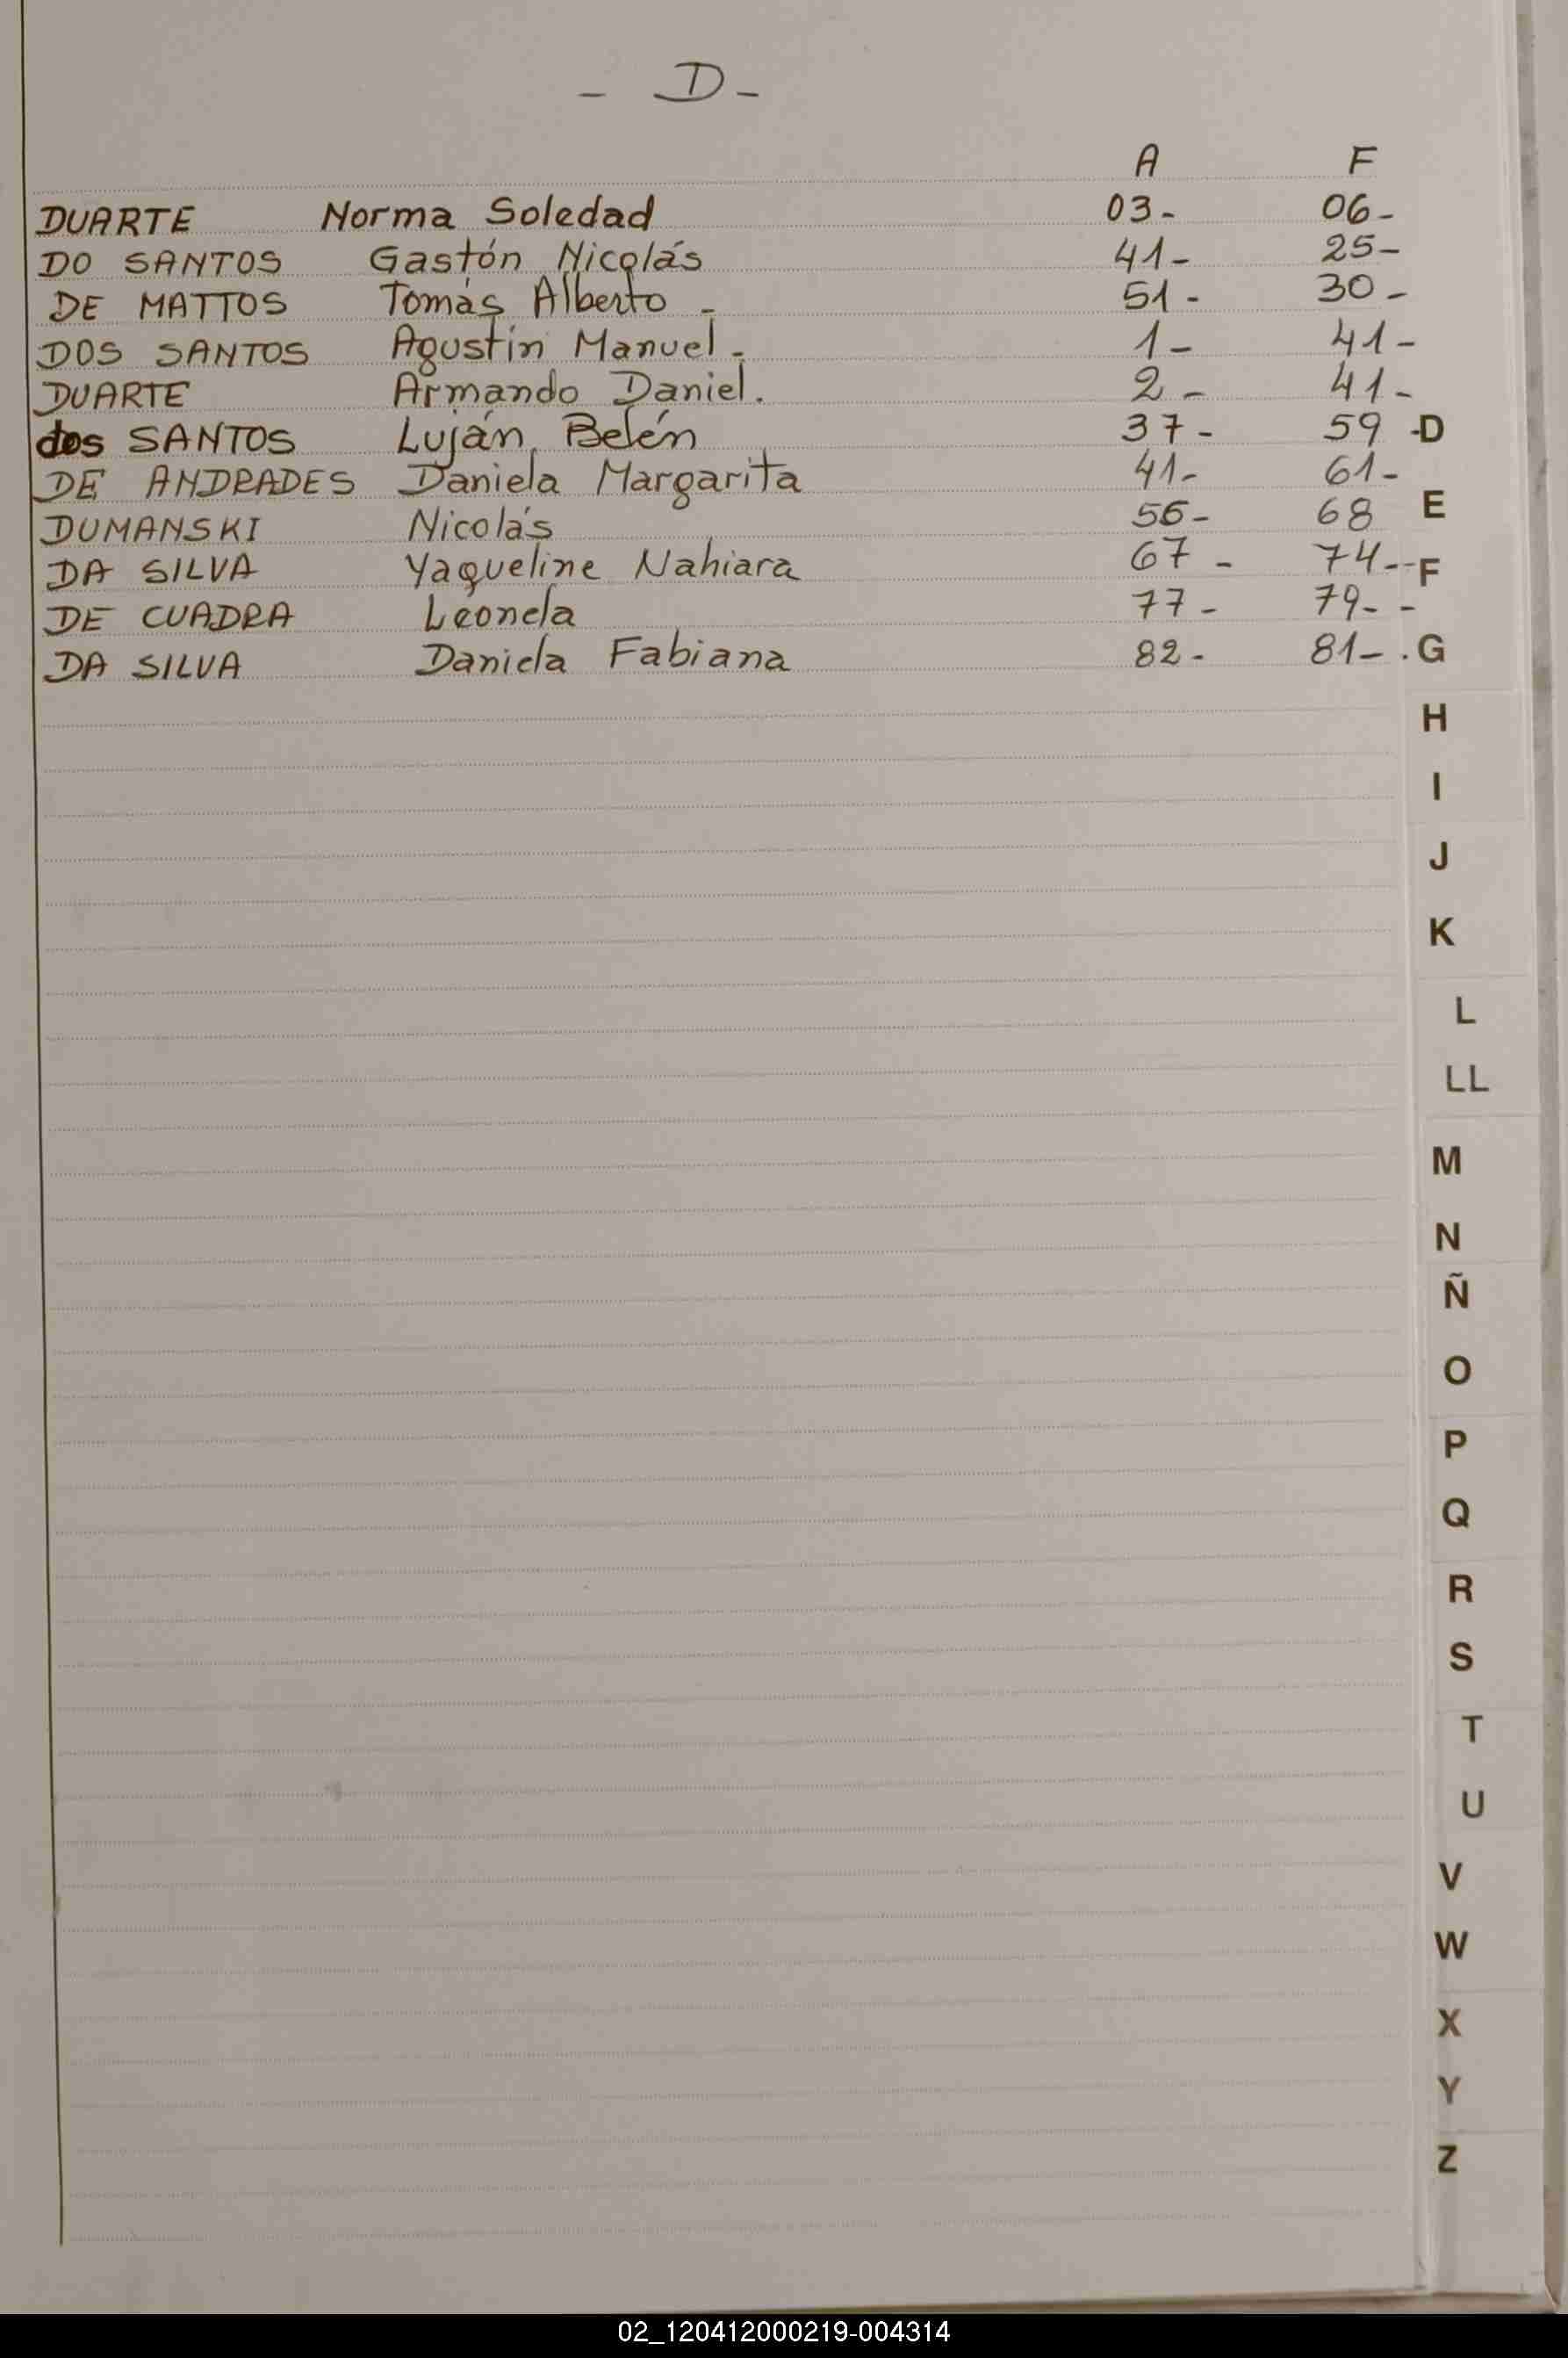 - D -
A F
DUARTE Norma Soledad 03- 06-
DO SANTOS Gastón Nicolás 41- 25-
DE MATTOS Tomás Alberto - 51- 30-
DOS SANTOS Agustín Manuel - 1- 41-
DUARTE Armando Daniel. 2- 41-
dos SANTOS Luján Belén 37- 59 -D
DE ANDRADES Daniela Margarita 41- 61-
E
DUMANSKI Nicolás 56- 68
DA SILVA Yaqueline Nahiara 67- 74-
F
DE CUADRA Leonela 77- 79-
DA SILVA Daniela Fabiana 82- 81-
G
H
I
J
K
L
LL
M
N
Ñ
O
P
Q
R
S
T
U
V
W
X
Y
Z
02_120412000219-004314